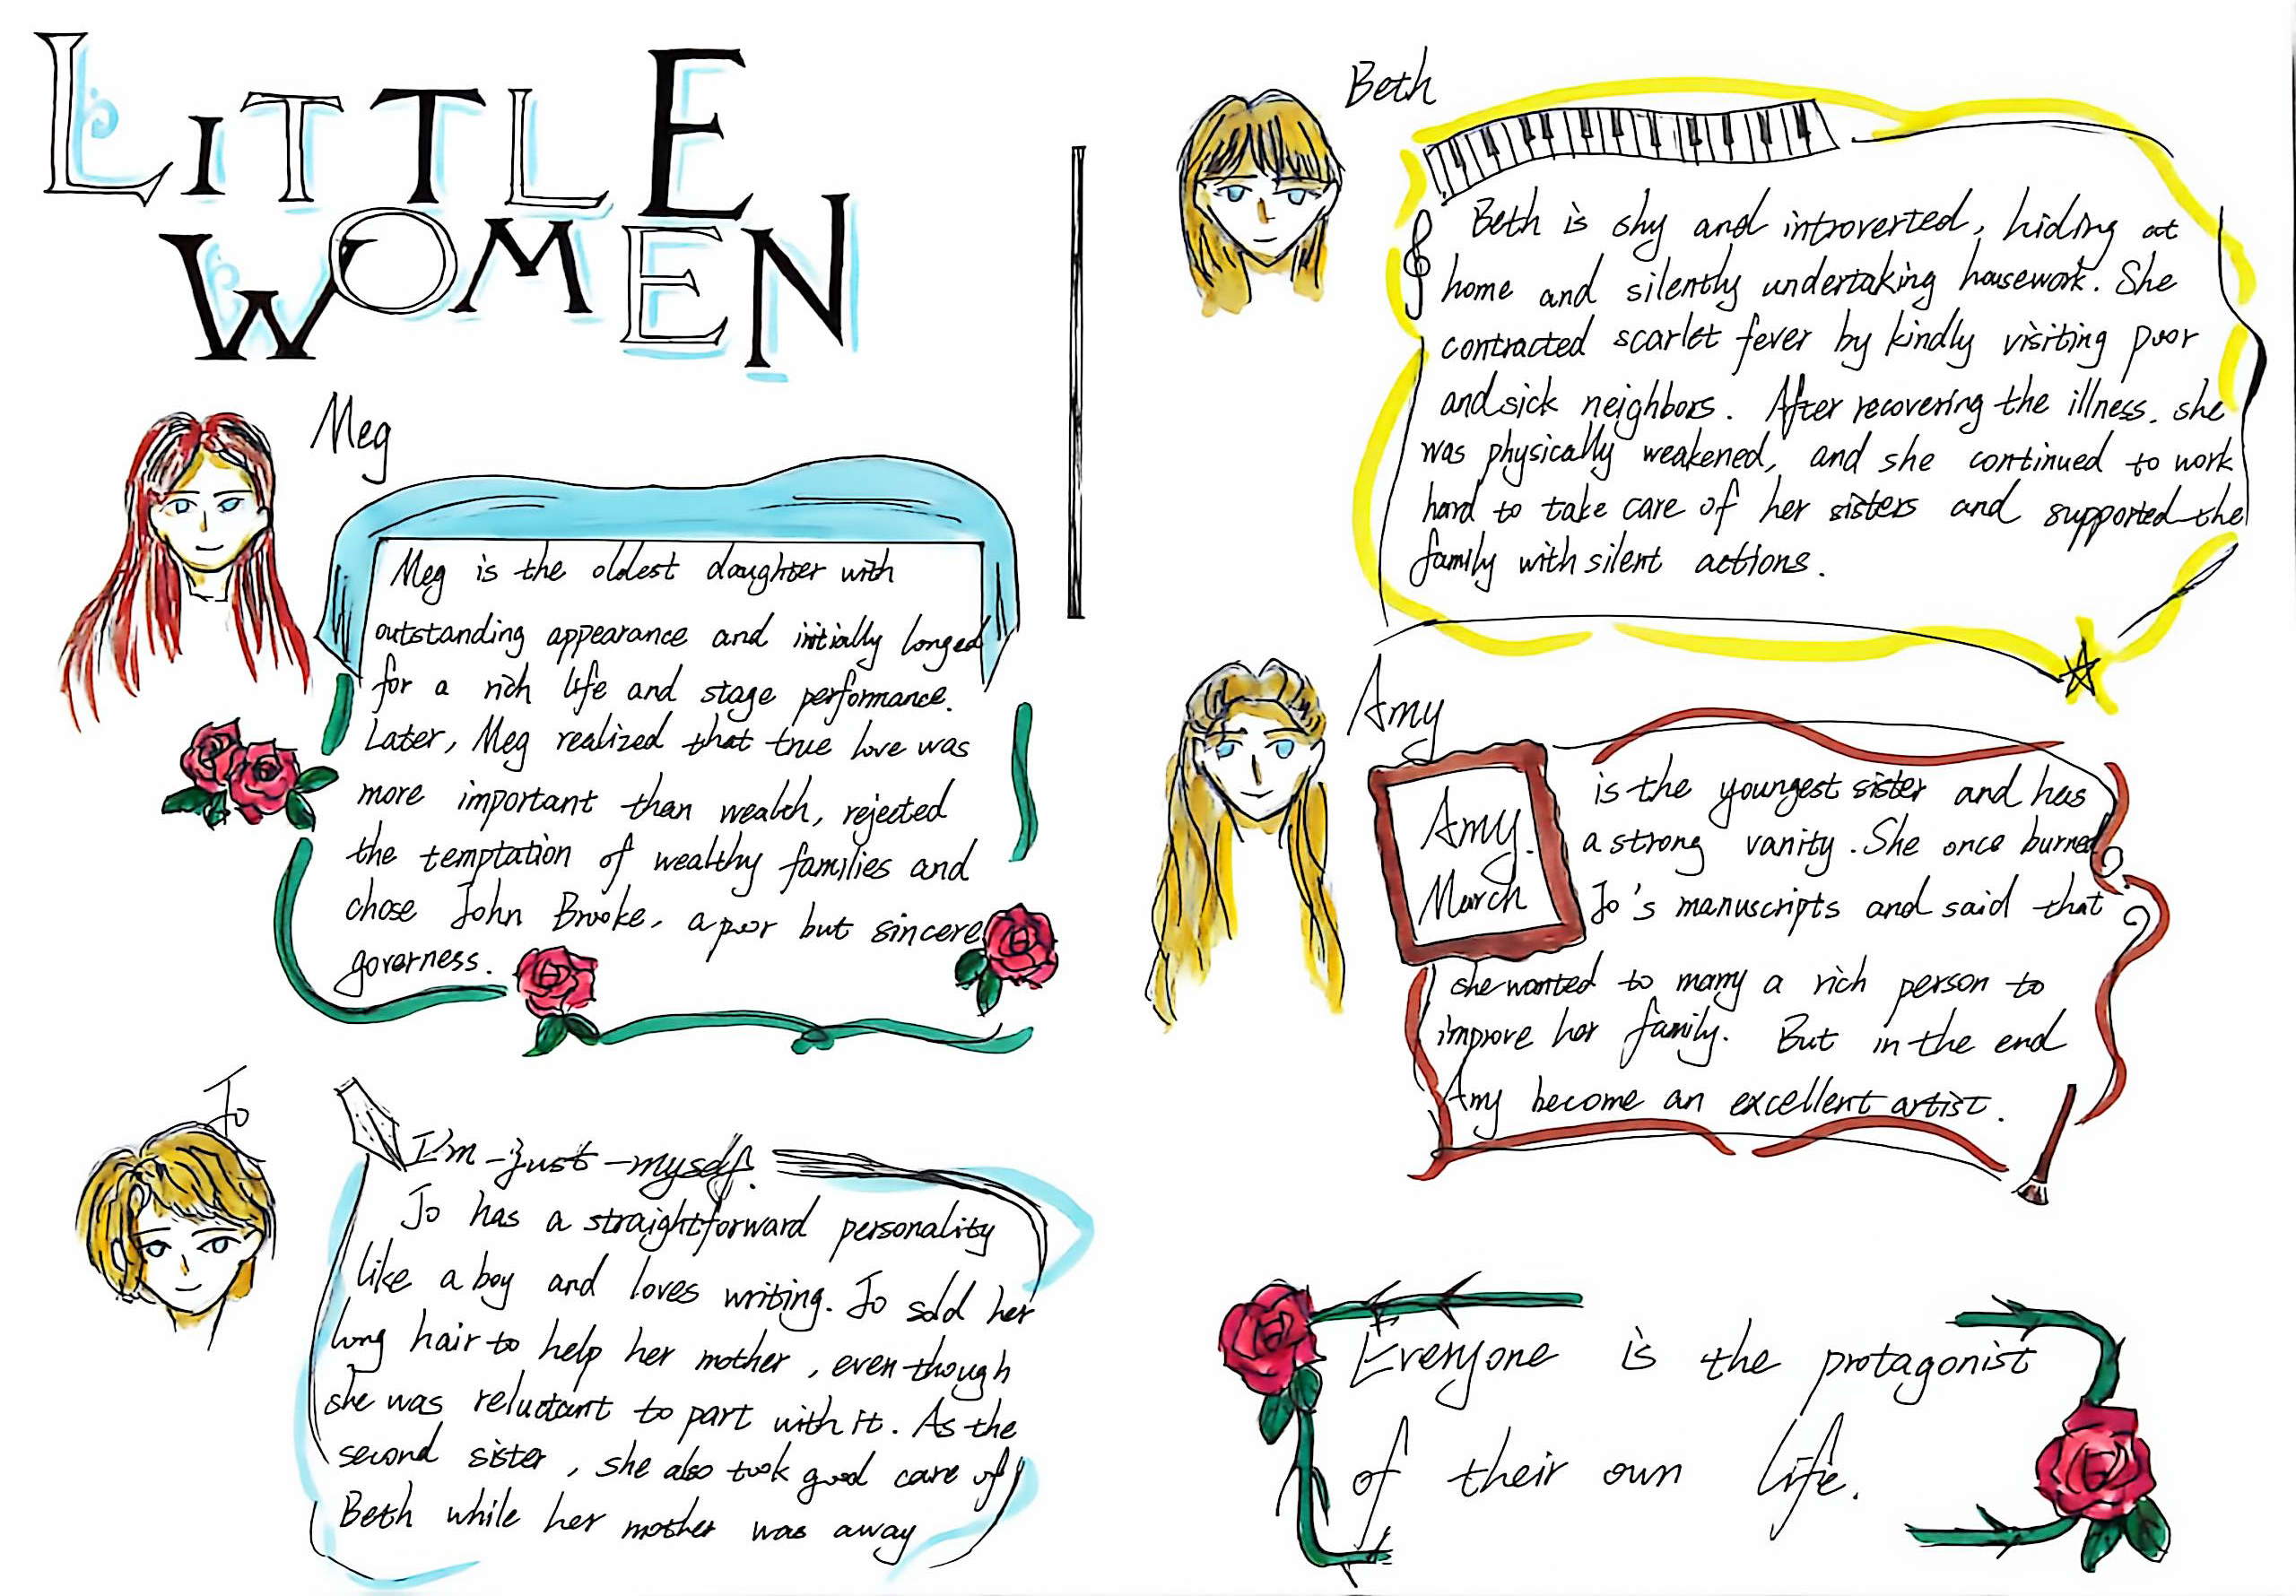 LiTTLE
WOMEN
Meg
Meg is the oldest daughter with
outstanding appearance and initially longed
for a rich life and stage performance.
Later, Meg realized that true love was
more important than wealth, rejected
the temptation of wealthy families and
chose John Brooke, a poor but sincere
governess.
Jo
I'm just myself.
Jo has a straightforward personality
like a boy and loves writing. Jo sold her
long hair to help her mother, even though
she was reluctant to part with it. As the
second sister, she also took good care of
Beth while her mother was away
Beth
Beth is shy and introverted, hiding at
home and silently undertaking housework. She
contracted scarlet fever by kindly visiting poor
and sick neighbors. After recovering the illness. she
was physically weakened, and she continued to work
hard to take care of her sisters and supported the
family with silent actions.
Amy
Amy.
March
is the youngest sister and has
a strong vanity. She once burned
Jo's manuscripts and said that
she wanted to marry a rich person to
improve her family. But in the end
Amy become an excellent artist.
Everyone is the protagonist
of their own life.